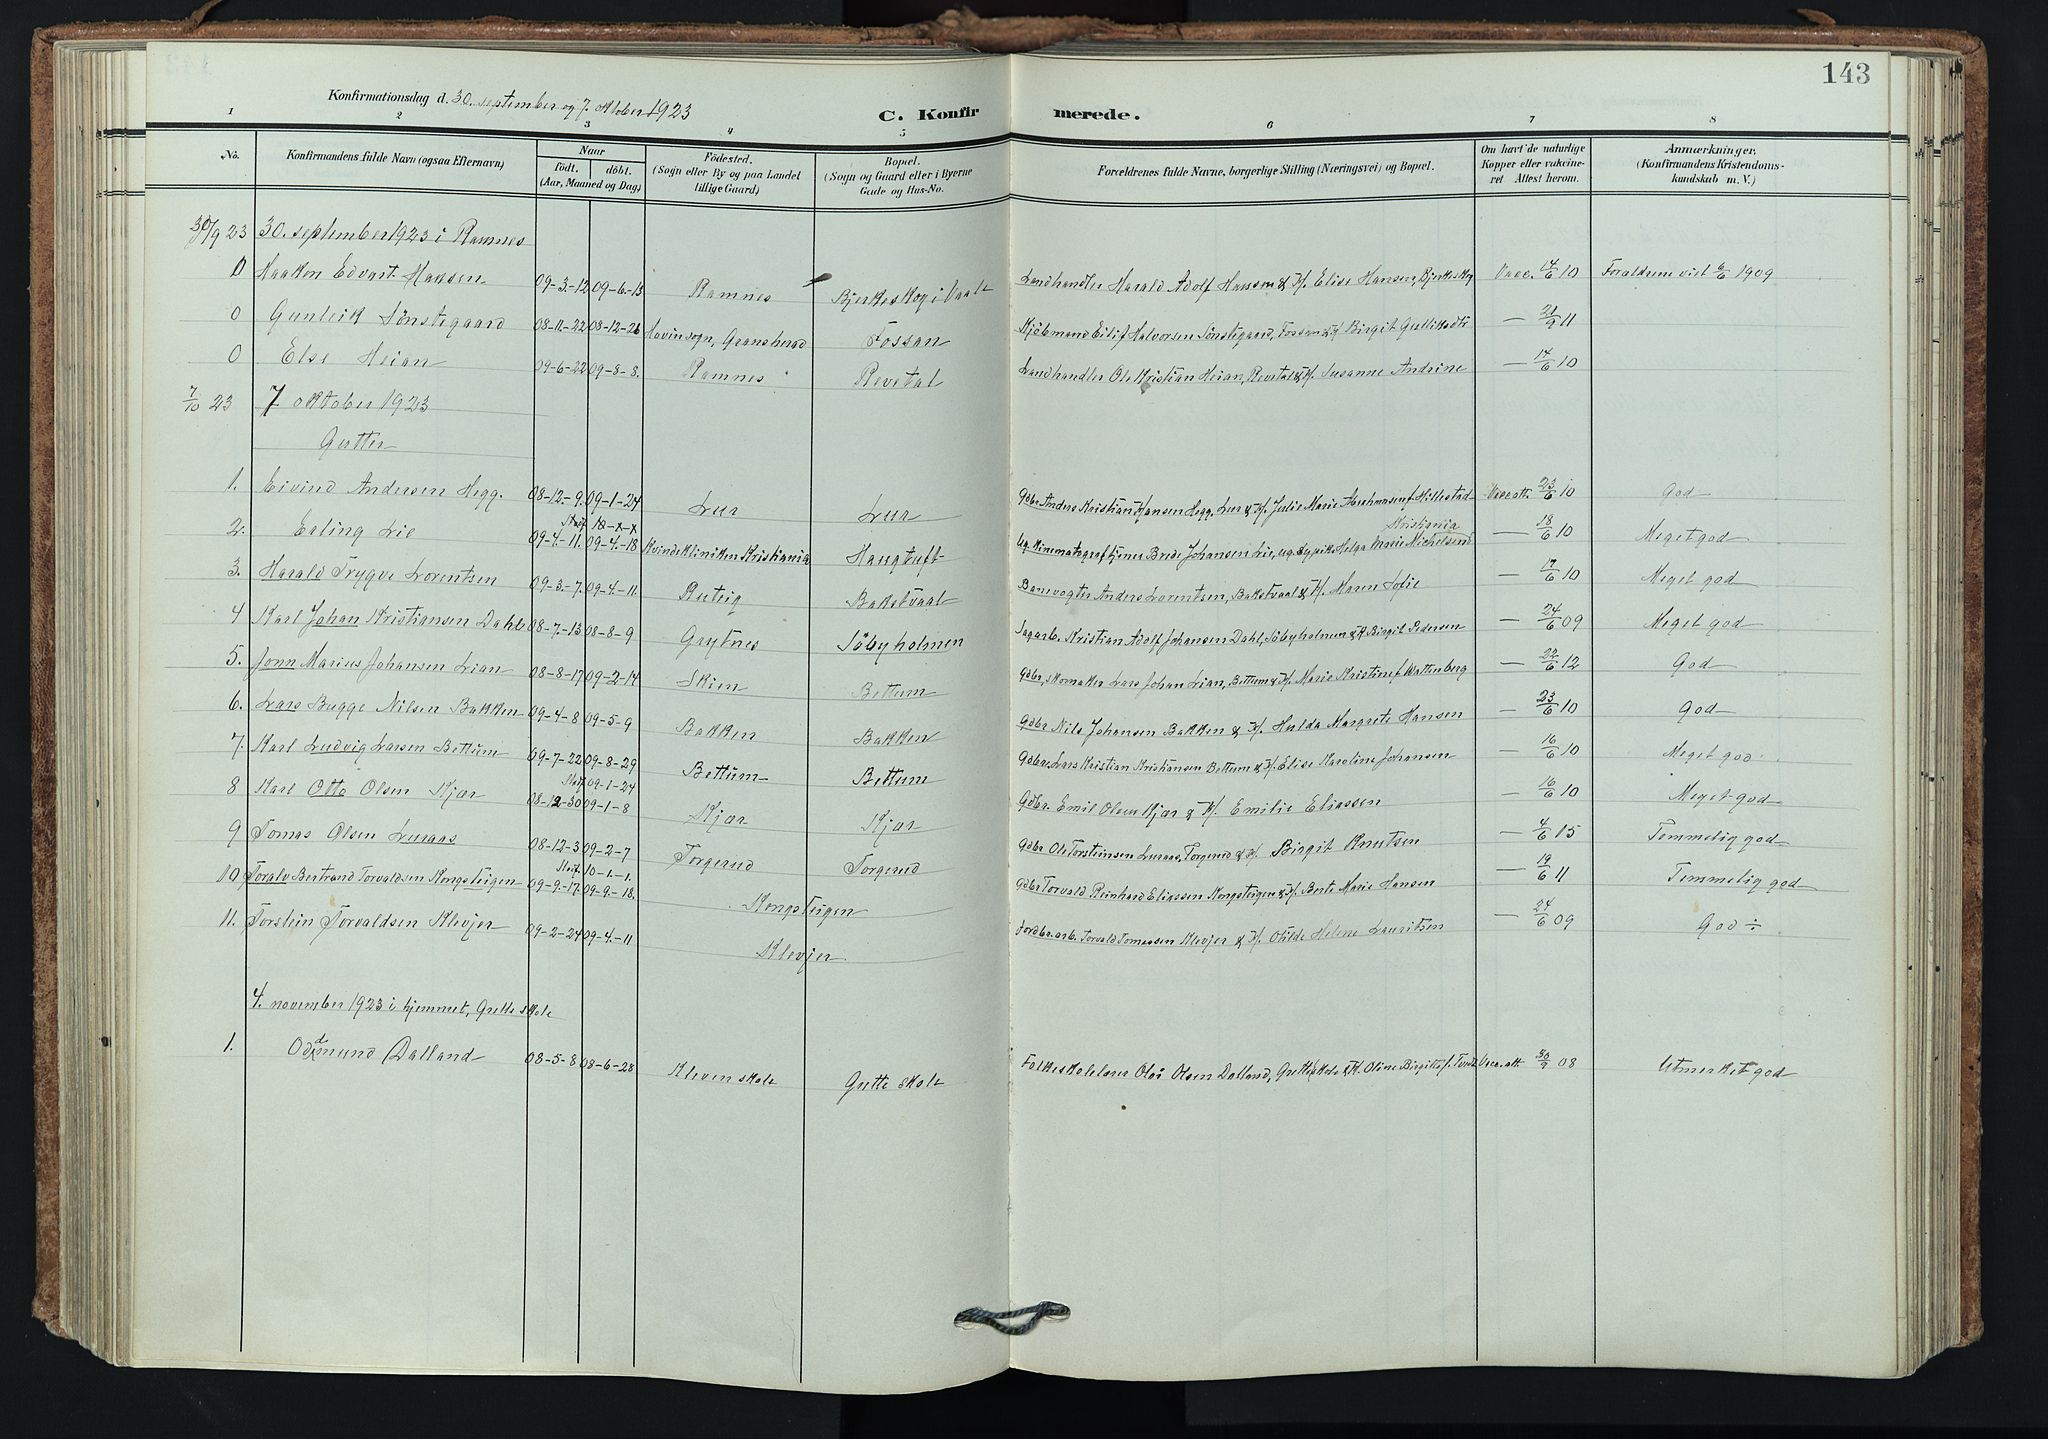 143
Konfirmationsdag d. 30. september og 7. oktober 1923
C. Konfirmerede.
1 2 3 4 5 6 7 8
No. Konfirmandens fulde Navn (ogsaa Efternavn) Naar födt. döbt. (Aar, Maaned og Dag) Födested. (Sogn eller By og paa Landet tillige Gaard) Bopæl. (Sogn og Gaard eller i Byerne Gade og Hus-No. Forældrenes fulde Navne, borgerlige Stilling (Næringsvei) og Bopæl. Om havt de naturlige Kopper eller vakcineret Attest herom. Anmærkninger. (Konfirmandens Kristendomskundskab m. V.)
30/9 23 30. september 1923 i Ramnes
0 Haakon Edvart Hansen 09-3-12 09-6-13 Ramnes Bjerkeskog i Vaale Landhandler Harald Adolf Hansen & H. Elise Hansen, Bjerkeskog Vacc. 14/6 10 Foraldrene viet 6/6 1909
0 Gunleik Sønstegaard 08-11-22 08-12-26 Hovin sogn, Gransherad Fossan Kjøbmand Eilif Halvorsen Sønstegaard, Fossan & H. Birgit Gulliksdtr — 21/9 11
0 Else Heian 09-6-22 09-8-8. Ramnes Revetal Landhandler Ole Kristian Heian, Revetal & H. Susanne Andrine — 14/6 10
7/10 23 7 oktober 1923
Gutter
1. Eivind Andersen Hegg. 08-12-9. 09-1-24 Lur Lur Gdbr Anders Kristian Hansen Hegg, Lur & H. Julie Marie Abrahamsen f. Hillestad Vacc att. 23/6 10 God
2. Erling Lie 09-4-11. Stadf. 10-x-x 09-4-18 Kvindekliniken Kristiania Haugtuft Ug. Kinematograftjener Brede Johansen Lie, ug. sypike Helga Marie Michelsen Kristiania — 18/6 10 Meget god
3. Harald Trygve Lorentsen 09-3-7. 09-4-11. Ruteig Bakstvaal Banevogter Anders Lorentsen, Bakstvaal & H. Maren Sofie — 17/6 10 Meget god
4 Karl Johan Kristiansen Dahl 08-7-13 08-8-9 Grytnes Söbyholmen Sagarb. Kristian Adolf Johansen Dahl, Söbyholmen & H Birgit Pedersen — 24/6 09 Meget god
5. Jonn Marius Johansen Lian 08-8-17 09-2-14 Skien Bettum Gdbr, skomaker Lars Johan Lian, Bettum & H. Marie Kristine f Wattenberg — 22/6 12 God
6. Lars Bugge Nilsen Bakken 09-4-8 09-5-9 Bakken Bakken Gdbr. Nils Johansen Bakken & H. Hulda Margrete Hansen — 23/6 10 God
7. Karl Ludvig Larsen Bettum 09-7-22 09-8-29 Bettum Bettum Gdbr. Lars Kristian Kristiansen Bettum & H. Elise Karoline Johansen — 16/6 10 Meget god
8 Karl Otto Olsen Kjær 08-12-30 Stadf. 09-1-24 09-1-8 Kjær Kjær Gdbr. Emil Olsen Kjær & H. Emilie Eliassen — 16/6 10 Meget god
9 Tomas Olsen Luraas 08-12-3 09-2-7 Torgerud Torgerud Gdbr Ole Torsteinsen Luraas, Torgerud & H. Birgit Knutsen — 4/6 15 Temmelig god
10 Toralv Bertrand Torvaldsen Kongsteigen 09-9-17. Stadf. 10-1-1. 09-9-18. Kongsteigen Gdbr Torvald Reinhard Eliassen Kongsteigen & H. Berte Marie Hansen — 19/6 11 Temmelig god
11. Torstein Torvaldsen Klevjer 09-2-24 09-4-11 Klevjer Jordbr.arb. Torvald Tomassen Klevjer & H. Otilde Helene Lauritsen — 24/6 09 God ÷
4. november 1923 i hjemmet, Grette skole
1. Oddmund Dalland 08-5-8 08-6-28 Kleven skole Grette skole Folkeskolelærer Olav Olsen Dalland, Grette skole & H. Oline Birgitte f. Tvedt Vacc. att. 30/9 08 Utmerket god